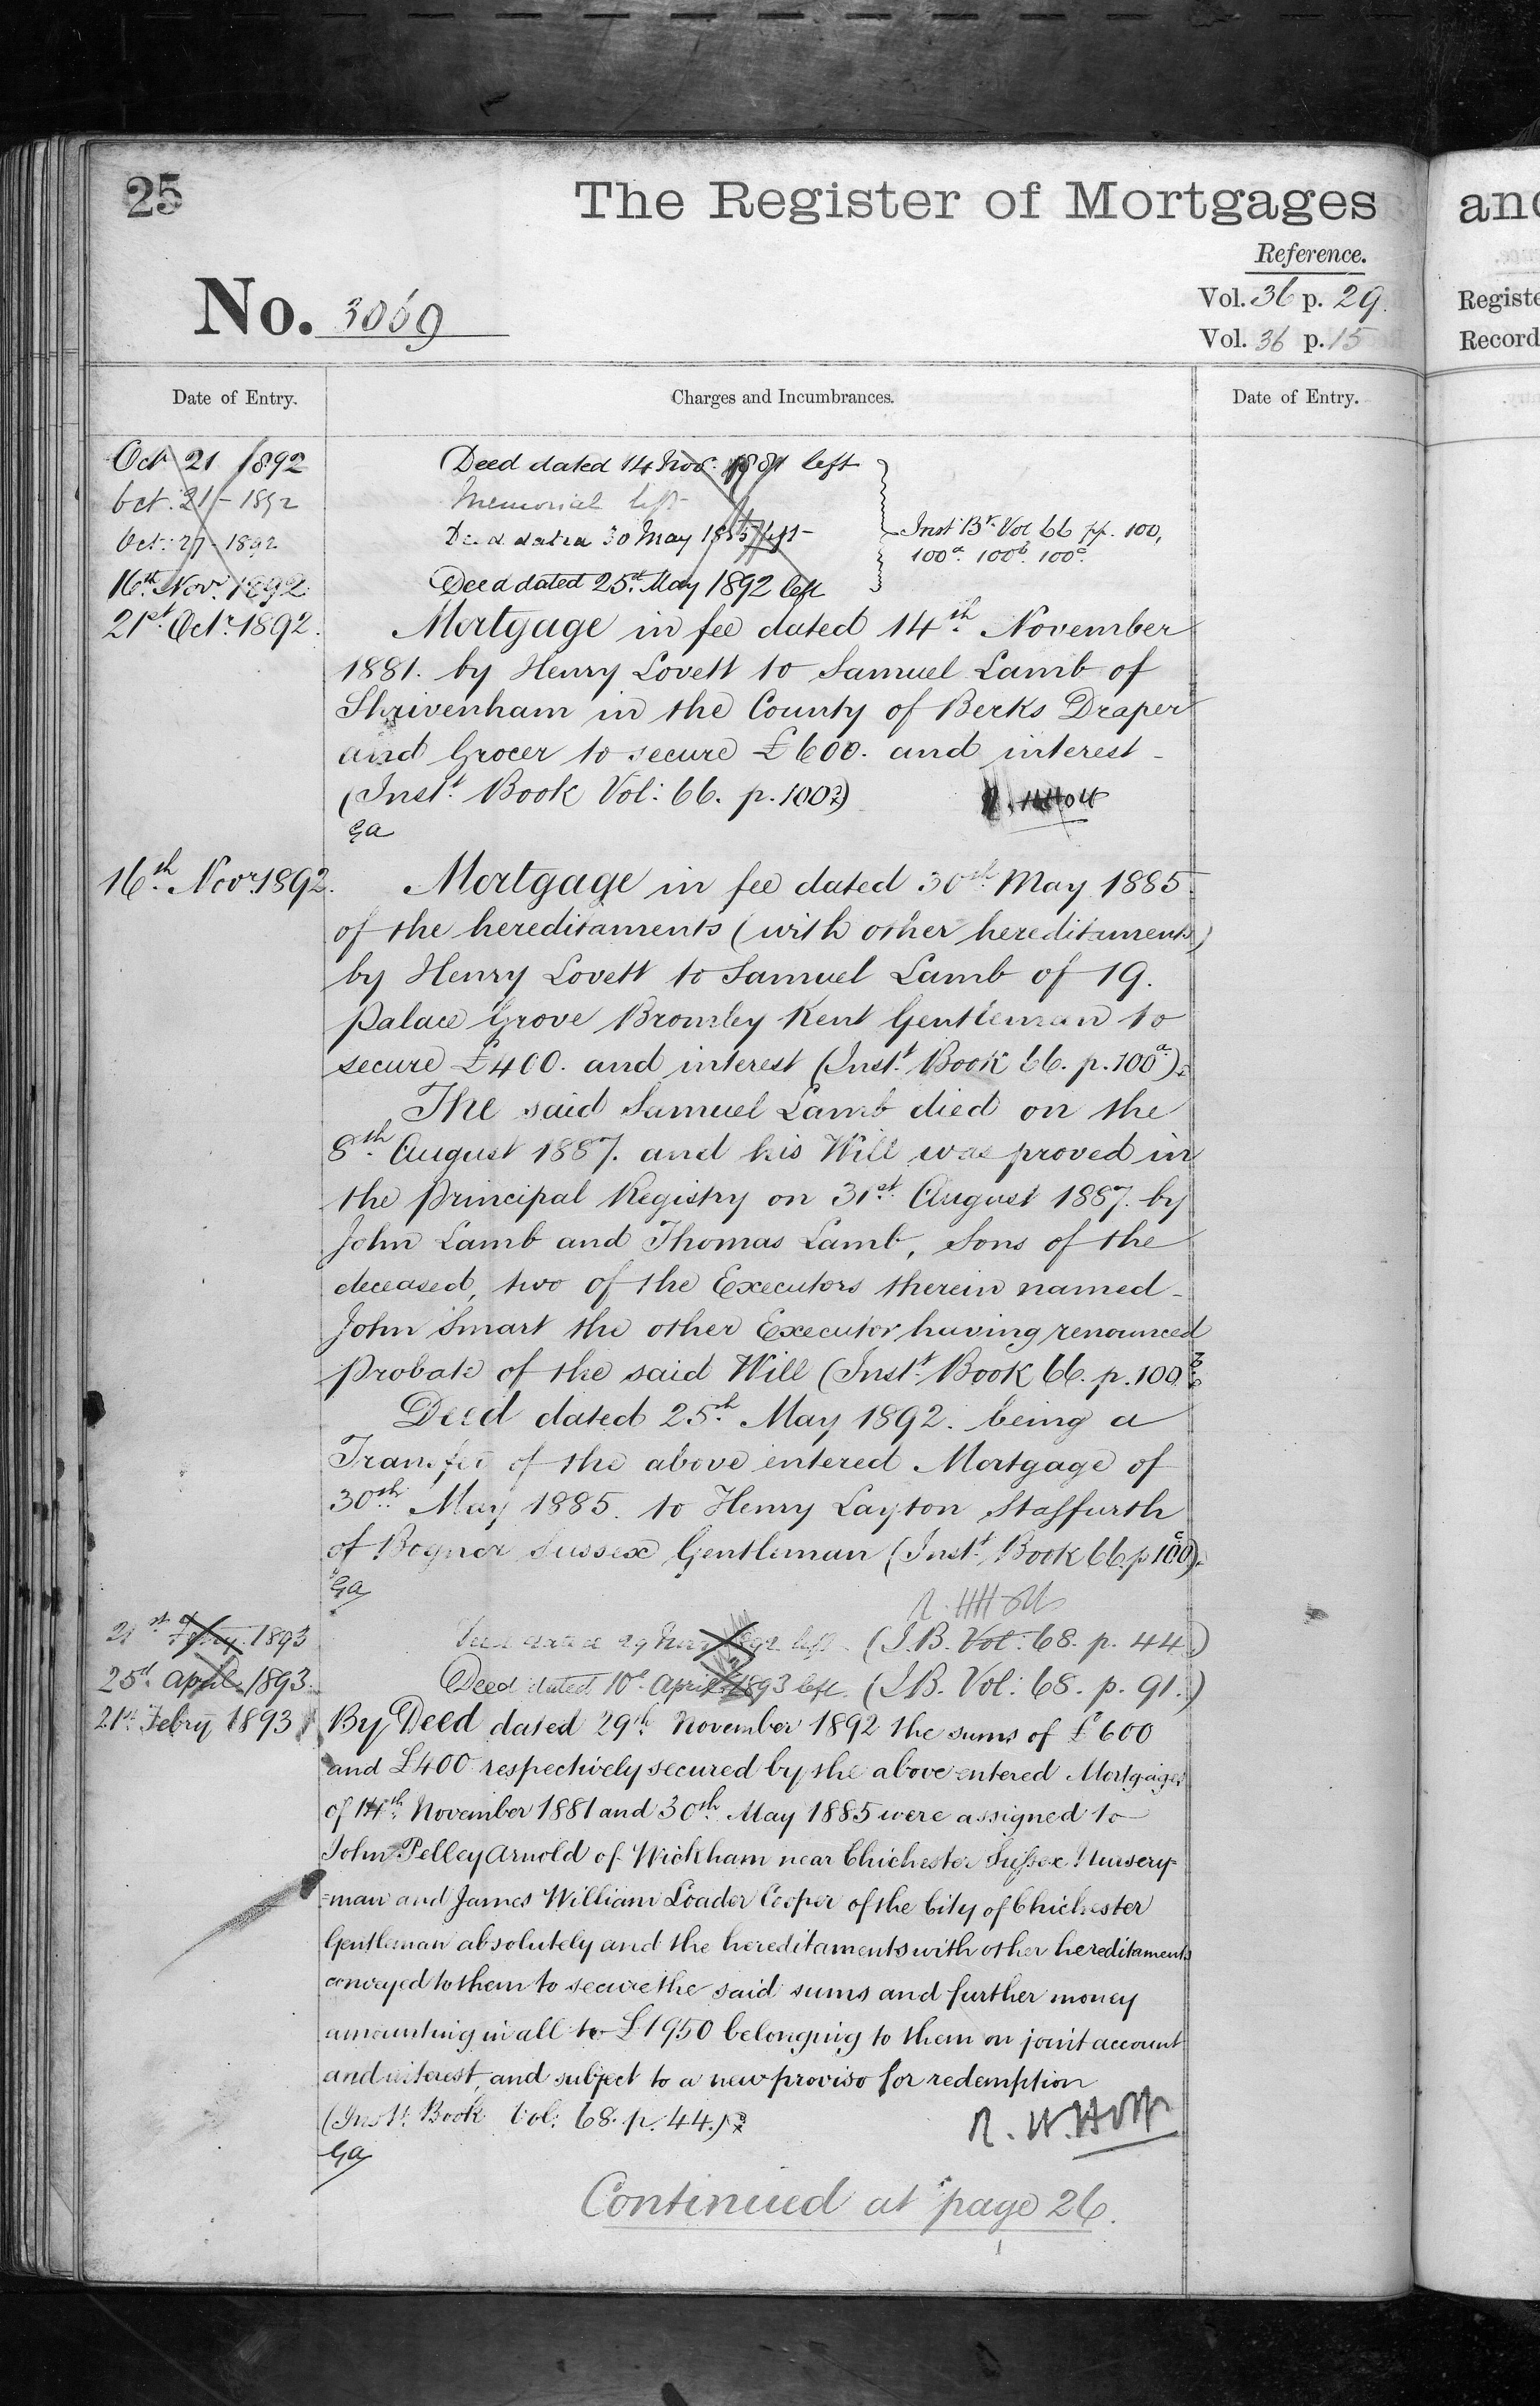 25
The Register of Mortgages
Reference.
No. 3069
Vol. 36 p. 29.
Vol. 36 p. 15
Date of Entry.
Charges and Incumbrances.
Date of Entry.
Oct 21 1892 Deed dated 14 Nov. 1881 left
Oct. 21 - 1892 Memorial left
Oct. 21 - 1892 Deed dated 30 May 1885 left
Inst Bk Vol 66 pp. 100,
100a. 100b. 100c.
16th Novr. 1892. Deed dated 25th May 1892 left
21st Octr. 1892. Mortgage in fee dated 14th November
1881. by Henry Lovett to Samuel Lamb of
Shrivenham in the County of Berks Draper
and Grocer to secure £600. and interest -
(Inst. Book Vol: 66. p. 100)
Ga
16th Novr 1892. Mortgage in fee dated 30th May 1885.
of the hereditaments (with other hereditaments)
by Henry Lovett to Samuel Lamb of 19.
Palace Grove Bromley Kent Gentleman to
secure £400. and interest (Inst. Book 66. p. 100a).
The said Samuel Lamb died on the
8th August 1887. and his Will was proved in
the Principal Registry on 31st August 1887. by
John Lamb and Thomas Lamb, Sons of the
deceased, two of the Executors therein named -
John Smart the other Executor having renounced
Probate of the said Will (Inst. Book 66. p. 100
Deed dated 25th May 1892. being a
Transfer of the above entered Mortgage of
30th May 1885. to Henry Layton Staffurth
of Bognor Sussex Gentleman (Inst. Book 66. p 100c).
Ga
21st Febry. 1893 Deed dated 29 Novr 1892 left (I.B. Vol: 68. p. 44.)
25th April 1893. Deed dated 10th April 1893 left. (I.B. Vol: 68. p. 91.)
21st Febry 1893 By Deed dated 29th November 1892 the sums of £600
and £400 respectively secured by the above entered Mortgages
of 14th November 1881 and 30th May 1885 were assigned to
John Pelley Arnold of Wickham near Chichester Sussex Nursery=
=man and James William Loader Cooper of the City of Chichester
Gentleman absolutely and the hereditaments with other hereditaments
conveyed to them to secure the said sums and further money
amounting in all to £1950 belonging to them on joint account
and interest, and subject to a new proviso for redemption
(Inst. Book Vol: 68. p. 44.)
Ga
Continued at page 26.
and
Registe
Record